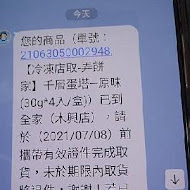 今天
您的商品（單號：
21063050002948
【冷凍店取-弄餅
家】千層蛋塔–原味
(30g*4入/盒)）已到
全家（木興店），請
於（2021/07/08）前
攜帶有效證件完成取
貨，未於期限內取貨